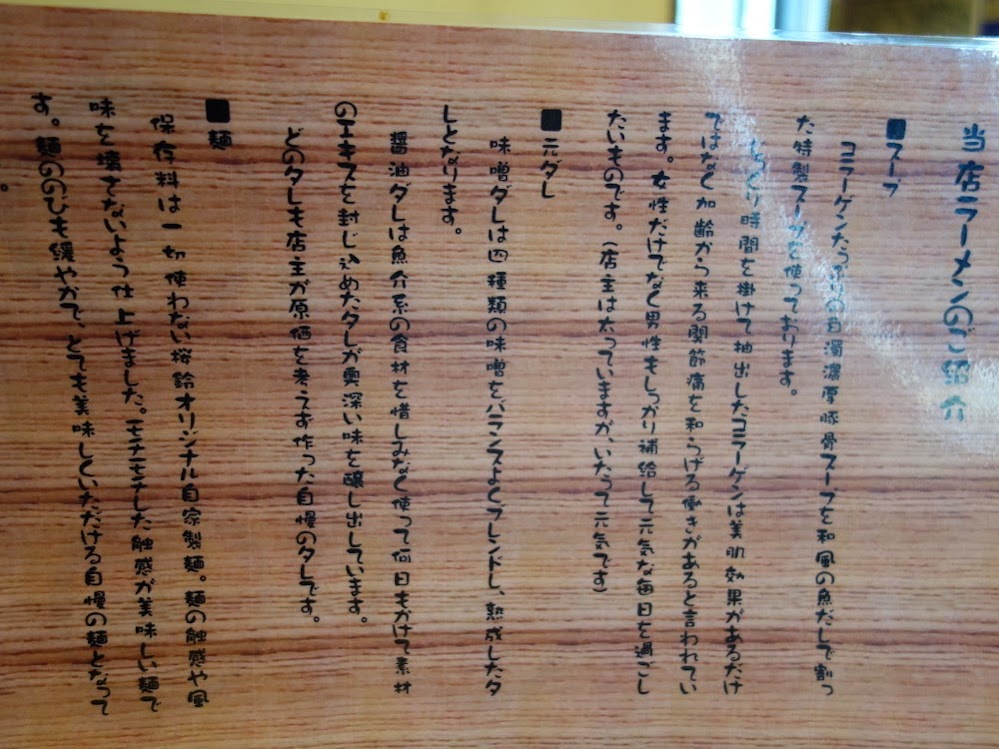 当店ラーメンのご紹介
■スープ
コラーゲンたっぷりの白濁濃厚豚骨スープを和風の魚だしで割っ
た特製スープを使っております。
じっくり時間を掛けて抽出したコラーゲンは美肌効果があるだけ
ではなく加齢から来る関節痛を和らげる働きがあると言われてい
ます。女性だけでなく男性もしっかり補給して元気な毎日を過ごし
たいものです。(店主は太っていますが、いたって元気です)
■元ダレ
味噌ダレは四種類の味噌をバランスよくブレンドし、熟成したタ
レとなります。
醤油ダレは魚介系の食材を惜しみなく使って何日もかけて素材
のエキスを封じ込めたタレが奥深い味を醸し出しています。
どのタレも店主が原価を考えず作った自慢のタレです。
■麺
保存料は一切使わない桜鈴オリジナル自家製麺。麺の触感や風
味を壊さないよう仕上げました。モチモチした触感が美味しい麺で
す。麺ののびも緩やかで、とても美味しくいただける自慢の麺となって
。